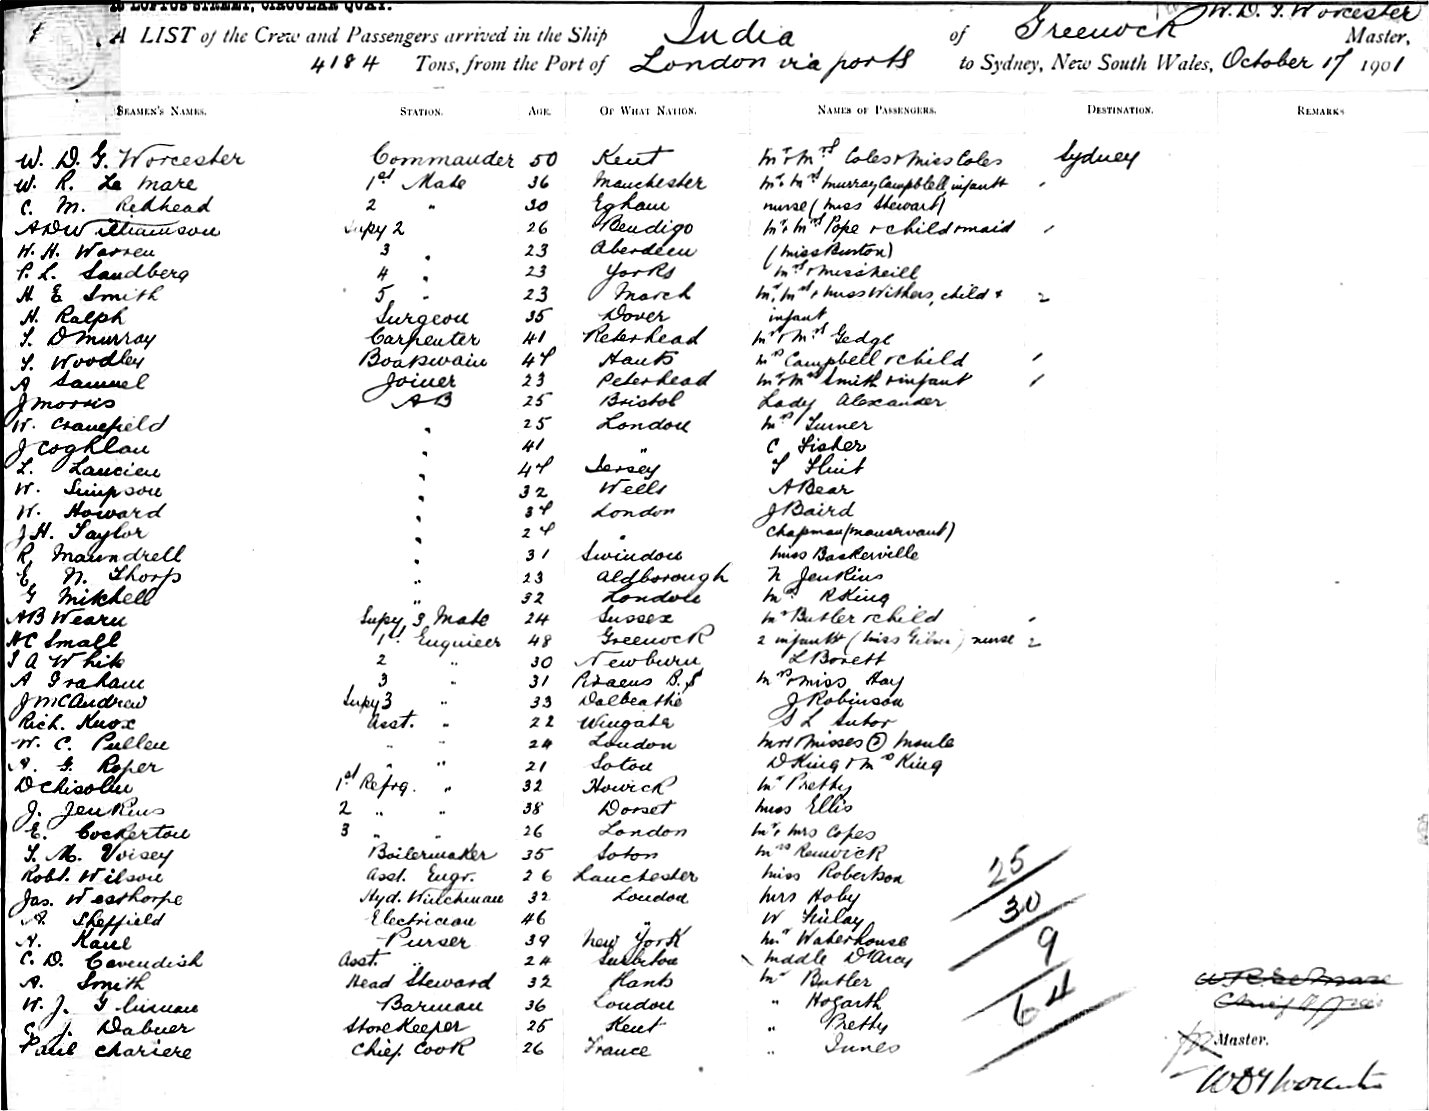 LOFTUS STREET, CIRCULAR QUAY.
W. D. G. Worcester
A LIST of the Crew and Passengers arrived in the Ship India of Greenock Master,
4184 Tons, from the Port of London via ports to Sydney, New South Wales, October 17 1901
SEAMEN'S NAMES. STATION. AGE. OF WHAT NATION. NAMES OF PASSENGERS. DESTINATION. REMARKS
W. D. G. Worcester Commander 50 Kent Mr & Mrs Coles & Miss Coles Sydney
W. R. Le Mare 1st Mate 36 Manchester Mr & Mrs Murray Campbell, infant &
C. M. Redhead 2 " 30 Egham nurse (Miss Stewart)
A D Williamson Supy 2 26 Bendigo Mr & Mrs Pope & child & maid
W. H. Warren 3 " 23 Aberdeen (Miss Burton)
P. L. Sandberg 4 " 23 Yorks Mrs & Miss Neill
H E Smith 5 " 23 March Mr, Mrs & Miss Withers, child & 2
H. Ralph Surgeon 35 Dover infant
T. D Murray Carpenter 41 Peterhead Mr & Mrs Gedge
T. Woodley Boatswain 47 Hants Mrs Campbell & child
A Samuel Joiner 23 Peterhead Mr & Mrs Smith & infant
J Morris AB 25 Bristol Lady Alexander
W. Cranefield " 25 London Mrs Turner
J Coghlan " 41 " C Fisher
L. Lancien " 47 Jersey T Flint
W. Simpson " 32 Wells A Bear
W. Howard " 37 London J Baird
J H. Taylor " 27 " Chapman (manservant)
R Maundrell " 31 Swindon Miss Baskerville
E. N. Thorp " 23 Aldborough N Jenkins
G Mitchell " 32 London Mrs R King
A B Wearn Supy 3 Mate 24 Sussex Mrs Butler & child
H C Small 1st Engineer 48 Greenock 2 infants (Miss) nurse 2
J A White 2 " 30 Newburn L Borett
A Graham 3 " 31 Piraeus B.S Mrs & Miss Hay
J McAndrew Supy 3 " 33 Dalbeathie J Robinson
Rich. Knox Asst. " 22 Wingate S L Sutor
W. C. Pullen " " 24 London Mrs & Misses (2) Moule
A. G. Roper " " 21 Soton D King & Mrs King
D Chisolm 1st Refrg. " 32 Howick Mr Pretty
J. Jenkins 2 " " 38 Dorset Miss Ellis
E. Cockerton 3 " " 26 London Mr & Mrs Copes
T. M. Voisey Boilermaker 35 Soton Mrs Renwick
Robt. Wilson Asst. Engr. 26 Lanchester Miss Robertson 25
Jas. Westhorpe Hyd. Winchman 32 London Mrs Hoby 30
A. Sheffield Electrician 46 " W Finlay
N. Kane Purser 39 New York Mr Waterhouse 9
C. D. Cavendish Asst. " 24 Surbiton Mddle D'Arcy
A. Smith Head Steward 32 Hants Mr Butler
W. J. Glinman Barman 36 London " Hogarth 64
C. J. Dabner Storekeeper 25 Kent " Pretty
Paul Chariere Chief Cook 26 France " Innes
W R Le Mare
Chief Officer
Master.
W D G Worcester